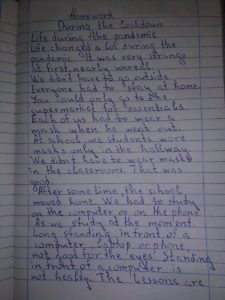 Homework
During the Lockdown
Life during the pandemic
Life changed a lot during the
pandemic. It was very strange
at first, nearly unreal.
We didn't have to go outside
Everyone had to stay at home.
You could only go to the
supermarket for essentials.
Each of us had to wear a
mask when he went out.
At school we students wore
masks only in the hallway.
We didn't have to wear masks
in the classrooms. That was
good.
After some time, the school
moved home. We had to study
on the computer or on the phone.
As we study at the moment.
Long standing in front of a
computer, laptop or phone,
not good for the eyes. Standing
in front of a computer is
not healty. The lessons are